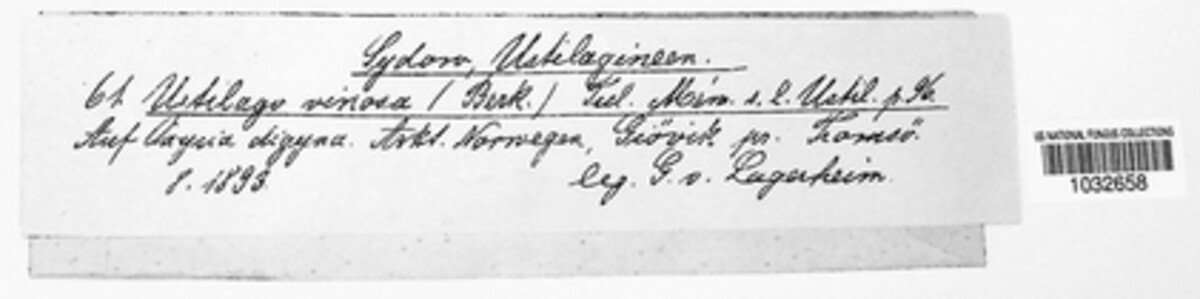 Sydow, Ustilagineen.
61. Ustilago vinosa (Berk.) Tul. Mém. s. l. Ustil. p. 96.
Auf Oxyria digyna. Arkt. Norwegen, Giövik pr. Tromsö.
8. 1893. leg. G. v. Lagerheim.
US NATIONAL FUNGUS COLLECTIONS
1032658